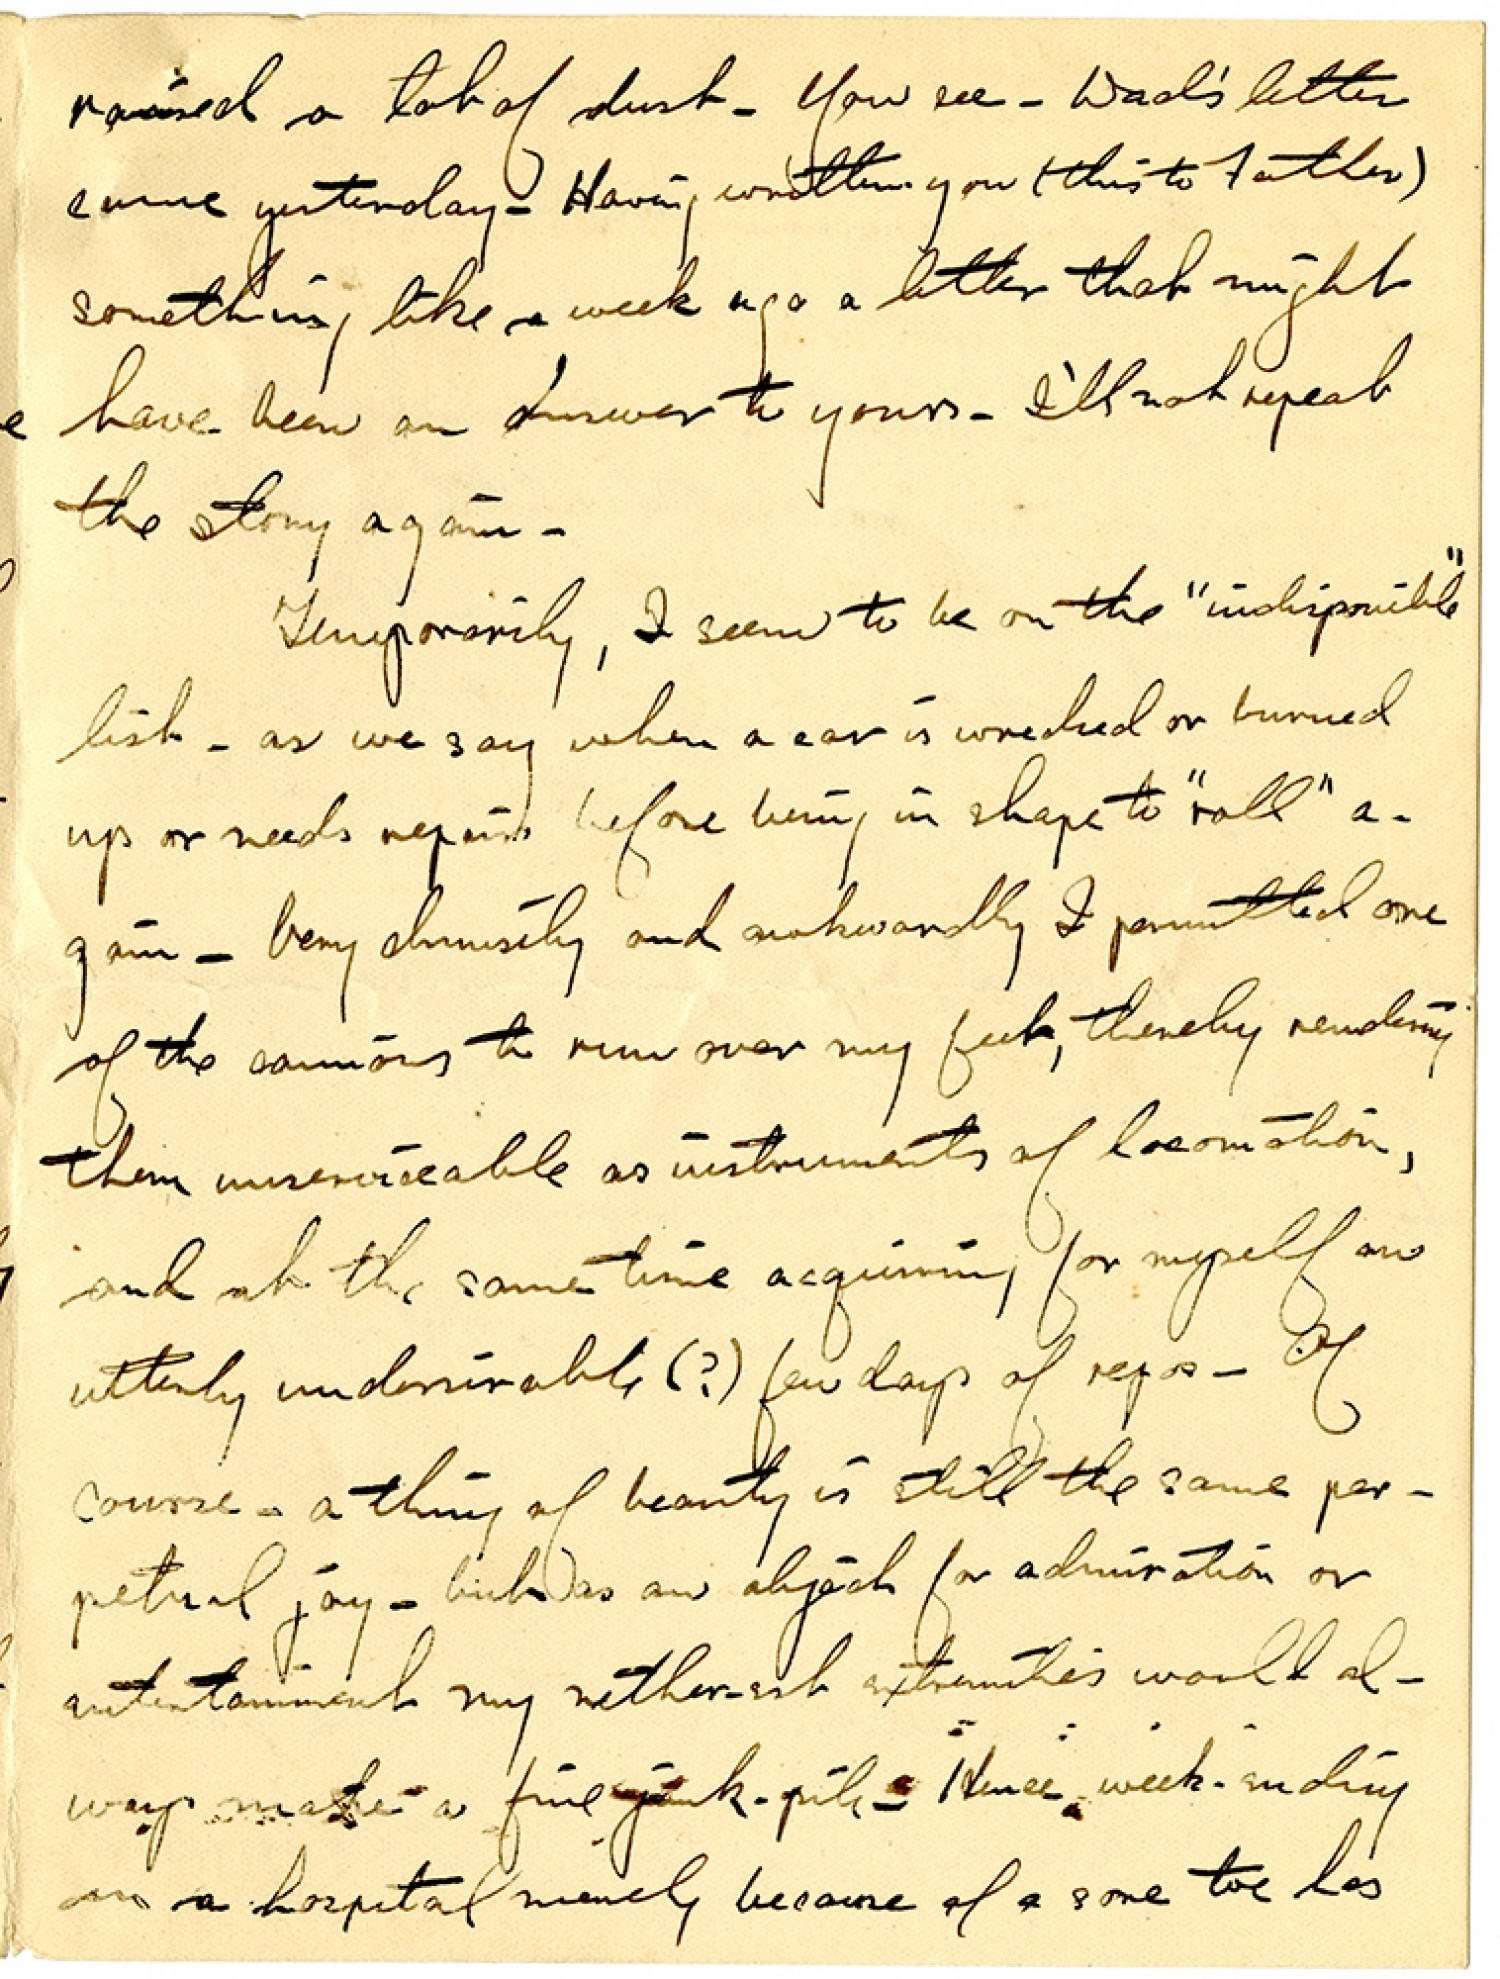 raised a lot of dust - You see - Dad's letter
came yesterday - Having written you (this to Father)
something like a week ago a letter that might
have been an answer to yours - I'll not repeat
the story again -
Temporarily, I seem to be on the "indisponible"
list - as we say when a car is wrecked or burned
up or needs repairs before being in shape to "roll" a-
gain - Very clumsily and awkwardly I permitted one
of the camions to run over my feet, thereby rendering
them unserviceable as instruments of locomotion,
and at the same time acquiring for myself an
utterly undesirable (?) few days of repos - Of
course - a thing of beauty is still the same per-
petual joy - but as an object for admiration or
entertainment my nether-est extremities would al-
ways make a fine junk-pile - Hence week-ending
in a hospital merely because of a sore toe has